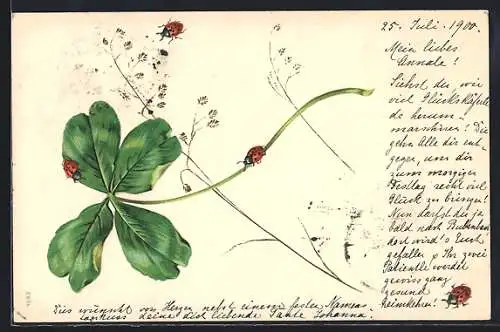 25. Juli. 1900.
Mein liebes
Annale!
Siehst du, wie
viel Glückskäferle
de herum-
marschiren! Die
gehn Alle dir ent-
gegen, um dir
zum morgigen
Festtag recht viel
Glück zu bringen!
Nun darfst du ja
bald nach
dort wird's Euch
gefallen, u. Ihr zwei
werdet
gewiss ganz
gesund
heimkehren!
Dies wünscht von Herzen nebst einem festen Namens
deine dich liebende Tante Johanna.